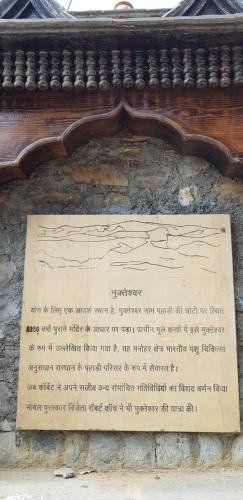 मुक्तेश्वर
योग के लिए एक आदर्श स्थान है, मुक्तेश्वर नाम पहाड़ी की चोटी पर स्थित
वर्षो पुराने मंदिर के आधार पर पड़ा। प्राचीन मूल ग्रन्थों में इसे मुक्तेश्वर
के रूप में उल्लेखित किया गया है, यह मनोहर क्षेत्र भारतीय पशु चिकित्सा
अनुसंधान संस्थान के पहाड़ी परिसर के रूप में सेवारत है।
जिम कॉर्बेट ने अपने सजीव वन्य रोमांचित गतिविधियों का विशद वर्णन किया
नोबेल पुरस्कार विजेता रॉबर्ट कॉच ने भी मुक्तेश्वर की यात्रा की।